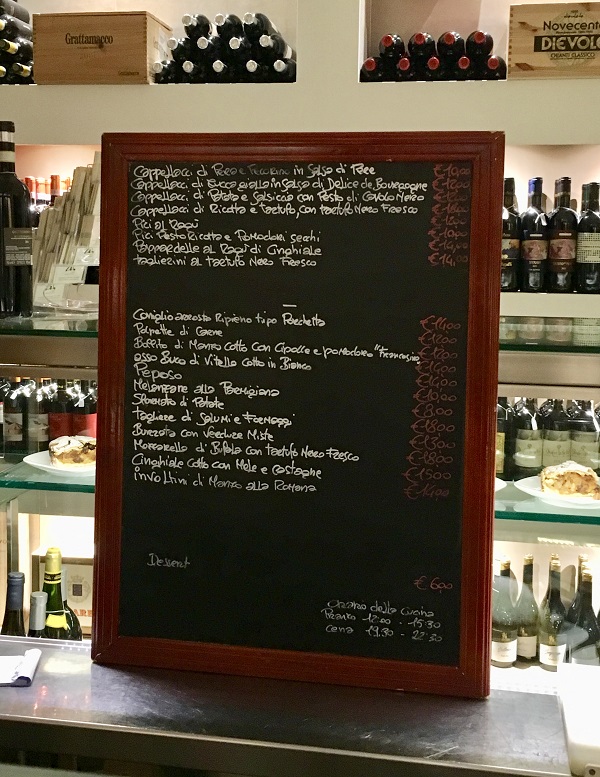 Grattamacco
Novecento
DIEVOLE
CHIANTI CLASSICO
Cappellacci di Pere e Pecorino in Salsa di Pere €12,00
Cappellacci di Zucca gialla in Salsa di Delice de Bourgogne
Cappellacci di Patate e Salsiccia con Pesto di Cavolo Nero
Cappellacci di Ricotta e tartufo, con tartufo Nero Fresco
Pici al Ragù
Pici Pesto Ricotta e Pomodori secchi
Pappardelle al Ragù di Cinghiale €14,00
taglierini al tartufo Nero Fresco €14,00
Coniglio arrosto Ripieno tipo Porchetta €14,00
Polpette di Carne €12,00
Bollito di Manzo cotto con Cipolle e pomodoro "Francesina"
Osso Buco di Vitella cotto in Bianco €14,00
Peposo €14,00
Melanzane alla Parmigiana €10,00
Sformato di Patate €8,00
tagliere di Salumi e Formaggi €18,00
Burrata con Verdure Miste €13,00
Mozzarella di Bufala con tartufo Nero Fresco €18,00
Cinghiale cotto con Mele e castagne €15,00
involtini di Manzo alla Romana €14,00
Dessert €6,00
Orario della Cucina
Pranzo 12:00 - 15:30
Cena 19.30 - 22:30